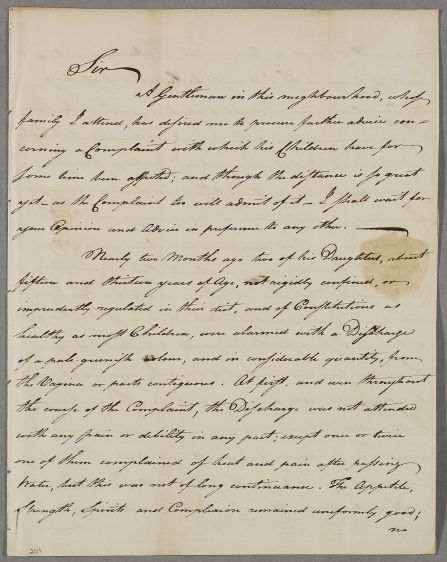 Sir
A Gentleman in this neighbourhood, whose
family I attend, has desired me to procure farther advice con-
cerning a Complaint with which his Children have for
some time been affected; and though the distance is so great
yet – as the Complaint too will admit of it – I shall wait for
your Opinion and Advice in preference to any other.
Nearly two Months ago two of his Daughters, about
fifteen and thirteen years of Age, not rigidly confined, or
imprudently regulated in their diet, and of Constitutions as
healthy as most Children, were alarmed with a Discharge
of a pale greenish colour, and in considerable quantity, from
the Vagina or parts contiguous. At first, and even throughout
the course of the Complaint, the Discharge was not attended
with any pain or debility in any part; except once or twice
one of them complained of heat and pain after passing
Water, but this was not of long continuance. The Appetite,
Strength, Spirits and Complexion remained uniformly good;
no
201